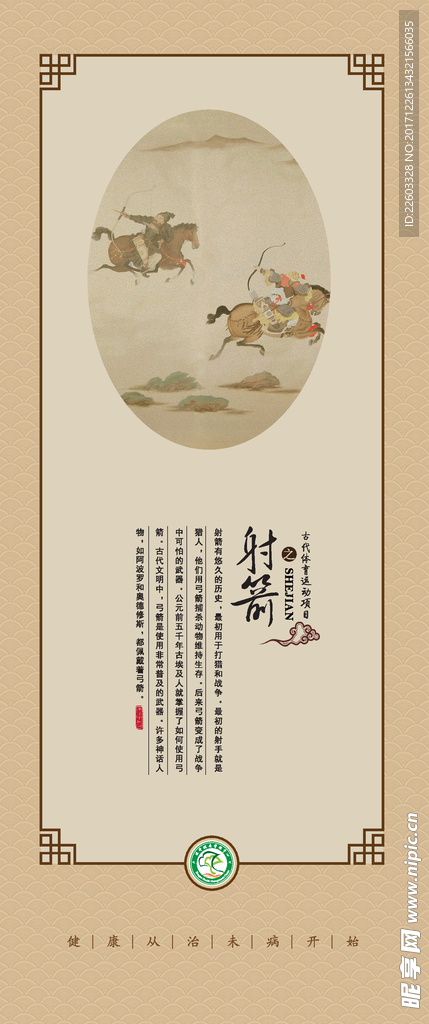 ID:22603328 NO:20171226134321566035
古代体育运动项目
之 SHEJIAN
射箭
射箭有悠久的历史，最初用于打猫和战争。最初的射手就是
猎人，他们用弓箭捕杀动物维持生存。后来弓箭变成了战争
中可怕的武器。公元前五千年古埃及人就掌握了如何使用弓
箭。古代文明中，弓箭是使用非常普及的武器。许多神话人
物，如阿波罗和奥德修斯，都佩戴着弓箭。
健｜康｜从｜治｜未｜病｜开｜始
昵享网 www.nipic.cn